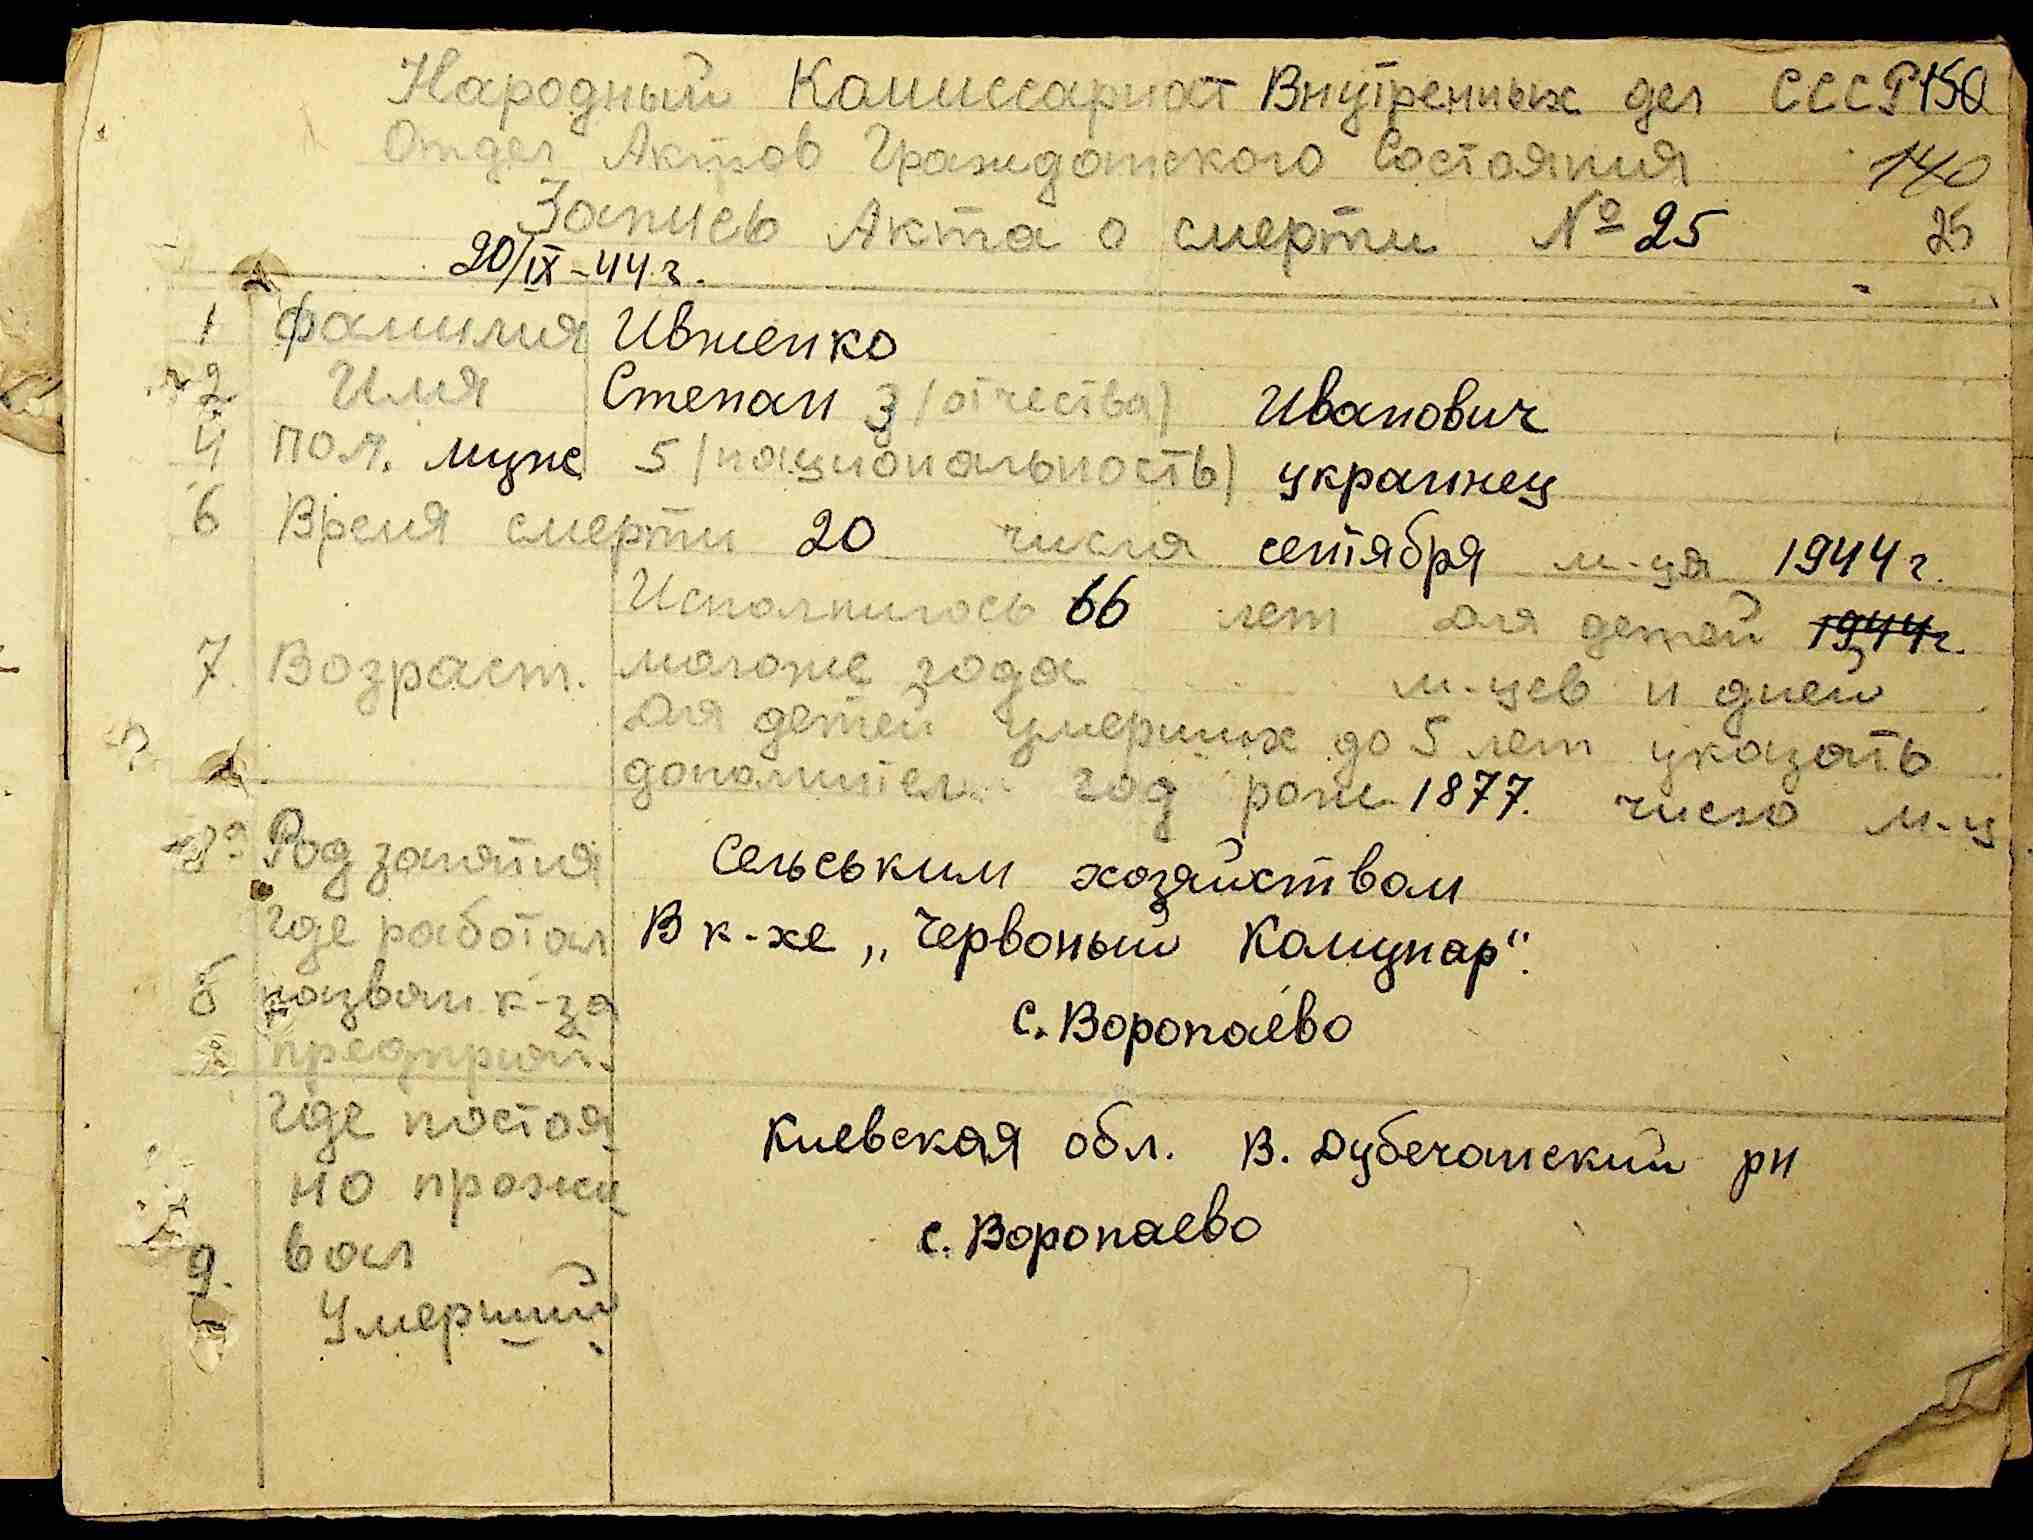 Народный Комиссариат Внутренных дел СССР 150
Отдел Актов Гражданского Состояния 140
Запись Акта о смерти № 25 25
20/IX-44 г.
1 Фамилия Ивженко
2 Имя Степан 3 (отчества) Иванович
4 пол. муж 5 (национальность) украинец
6 Время смерти 20 числа сентября м-ця 1944 г.
Исполнилось 66 лет для детей 1944 г.
7. Возраст. моложе года м-цев и дней
для детей умерших до 5 лет указать
дополнител. год рож. 1877. число м-ц
Род занятия Сельським хозяйством
где работал В к-хе „Червоный Комунар".
8 назван к-за с. Воропаево
предприй.
Где постоя Киевская обл. В. Дубечанский рн
но прожи с. Воропаево
9. вал
Умерший